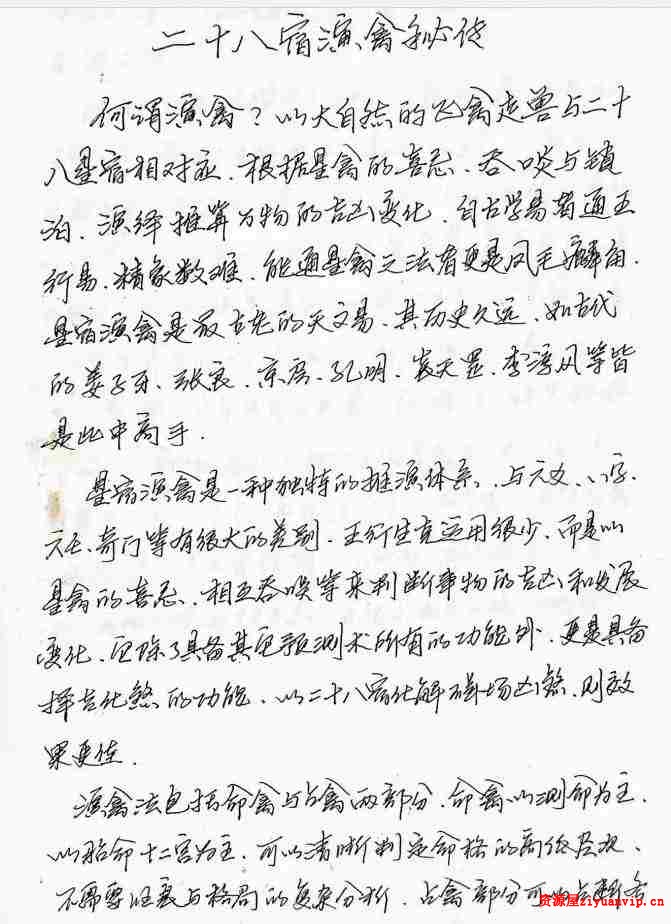 二十八宿演禽秘传
何谓演禽？以大自然的飞禽走兽与二十
八星宿相对应．根据星禽的喜忌、吞啖与锁
泊．演绎推算万物的吉凶变化．自古学易者通五
行易．精象数难．能通星禽之法者更是凤毛麟角．
星宿演禽是最古老的天文易．其历史久远．如古代
的姜子牙．张良．京房．孔明．袁天罡．李淳风等皆
是此中高手．
星宿演禽是一种独特的推演体系．与六爻、八字．
六壬、奇门等有很大的差别．五行生克运用很少．而是以
星禽的喜忌．相互吞啖等来判断事物的吉凶和发展
变化．它除了具备其它预测术所有的功能外．更是具备
择吉化煞的功能．以二十八宿化解磁场凶煞．则效
果更佳．
演禽法包括命禽与占禽两部分．命禽以测命为主．
以胎命十二宫为主．可以清晰判定命格的高低层次．
不需要旺衰与格局的复杂分析．占禽部分可以占断各
资源屋ziyuanvip.cn